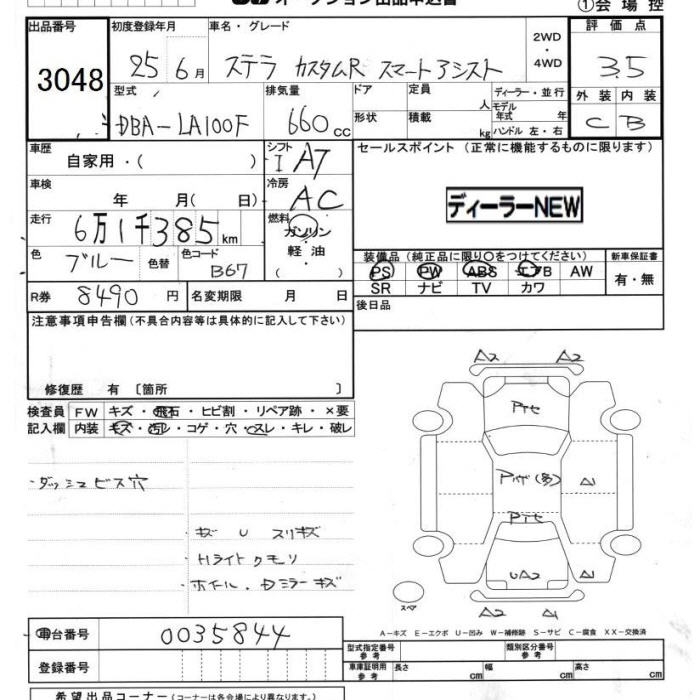 オークション出品申込書 ①会場控
出品番号 初度登録年月 車名・グレード 2WD・4WD 評価点
3048 25年6月 ステラ カスタムR スマートアシスト 3.5
型式 排気量 ドア 定員 人 ディーラー・並行 外装 内装
DBA-LA100F 660cc 形状 積載 kg モデル年式 年 ハンドル 左・右 C B
車歴 自家用・( ) シフト I A7 セールスポイント (正常に機能するものに限ります)
車検 年 月( 日) 冷房 AC
ディーラーNEW
走行 6万1千385km 燃料 ガソリン・軽油・( )
色 ブルー 色替 色コード B67
装備品(純正品に限り○をつけてください) 新車保証書
PS PW ABS エアB AW 有・無
SR ナビ TV カワ
R券 8490円 名変期限 月 日 後日品
注意事項申告欄(不具合内容等は具体的に記入して下さい)
修復歴 有 〔箇所 〕
検査員 FW キズ・飛石・ヒビ割・リペア跡・×要
記入欄 内装 キズ・汚レ・コゲ・穴・スレ・キレ・破レ
A2 A2
ダッシュビス穴
A1
キズ U スリキズ
Hライト クモリ
ホイール、Dミラーキズ
UA2
スペア A2 A1
車台番号 0035844
A-キズ E-エクボ U-凹み W-補修跡 S-サビ C-腐食 XX-交換済
登録番号 型式指定番号 参考 類別区分番号 参考
車庫証明用 参考 長さ cm 幅 cm 高さ cm
希望出品コーナー(コーナーは各会場により異なります。)